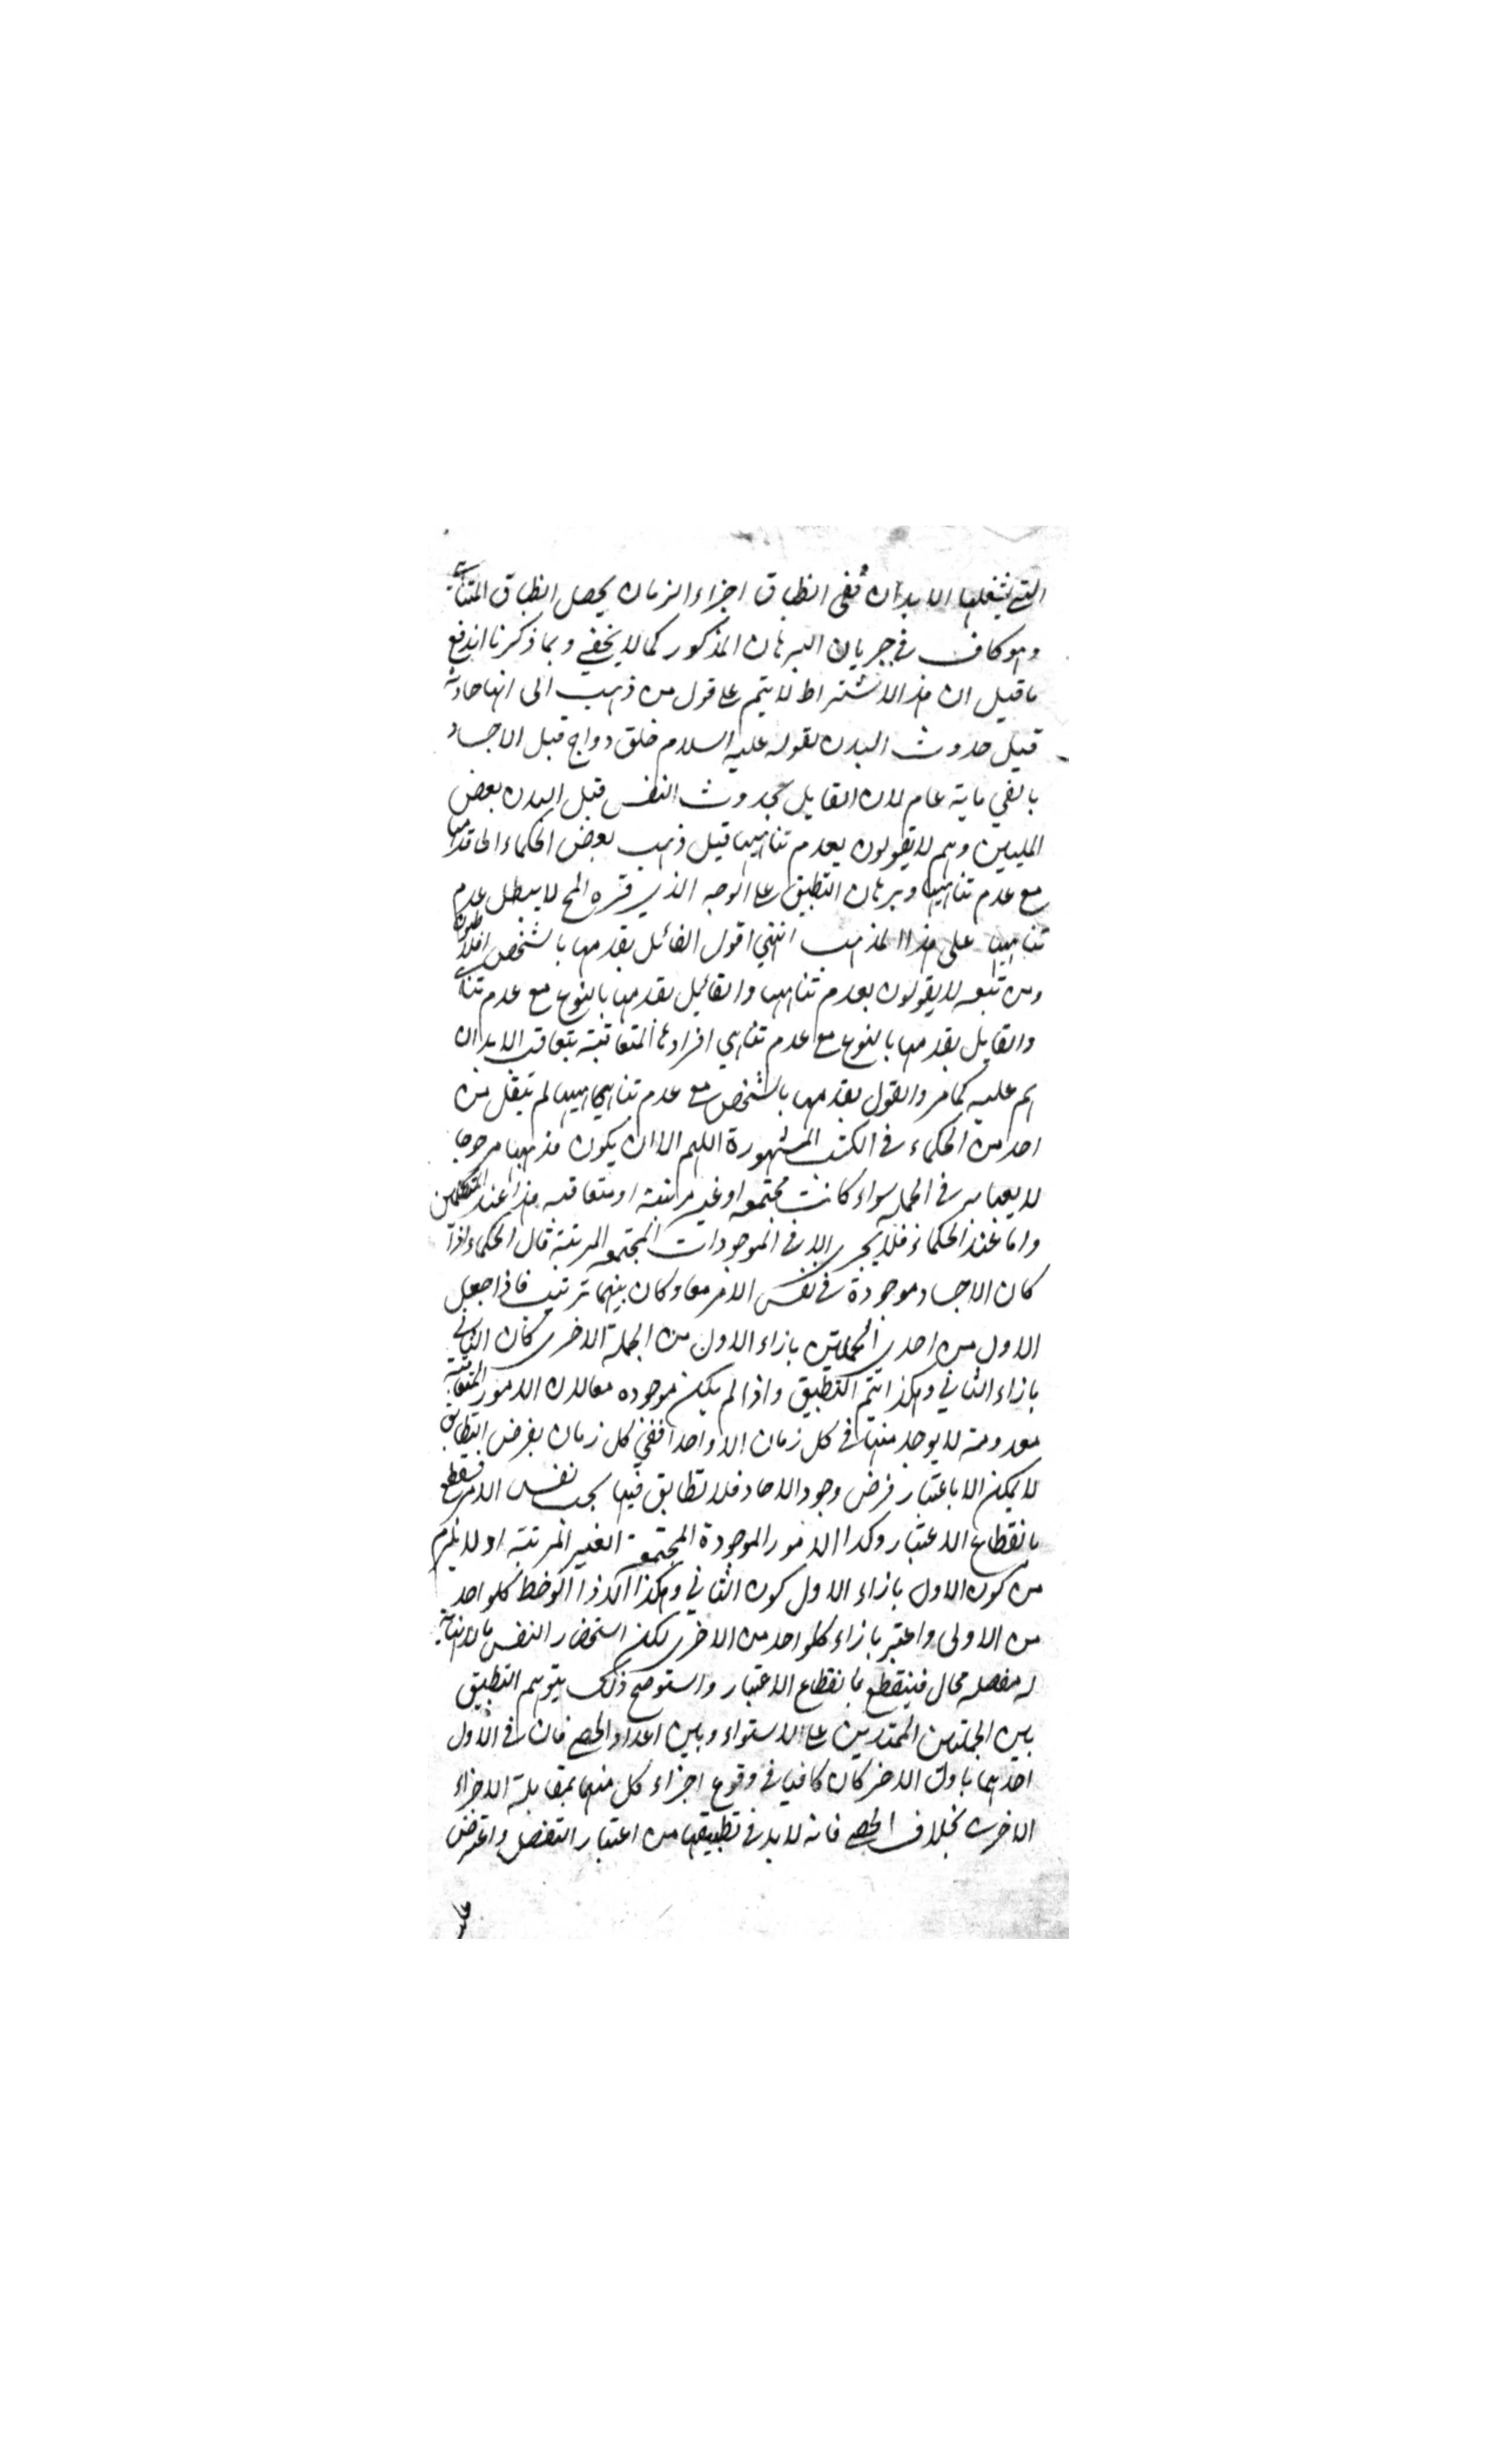 التي يشغلها الابدان ففي انطباق اجزاء الزمان يحصل انطباق المتناهي
وهو كاف في جريان البرهان المذكور كما لا يخفى وبما ذكرنا اندفع
ما قيل ان هذا الاشتراط لا يتم على قول من ذهب الى انها حادثة
قبل حدوث البدن لقوله عليه السلام خلق دواج قبل الاجساد
بالفي ماية عام لان القايل بحدوث النفس قبل البدن بعض
المليين وهم لا يقولون بعدم تناهيها قيل ذهب بعض الحكماء الى قدمها
مع عدم تناهيها وبرهان التطبيق على الوجه الذي قرره المح لا يبطل عدم
تناهيها على هذا المذهب انتهى اقول القائل بقدمها بالشخص افلاطون
ومن تبعه لا يقولون بعدم تناهيها والقائل بقدمها بالنوع مع عدم تناهي
والقايل بقدمها بالنوع مع عدم تناهي افرادها المتعاقبة بتعاقب الابدان
يم عليه كما مر والقول بقدمها بالشخص مع عدم تناهيها لم ينقل من
احد من الحكماء في الكتب المشهورة اللهم الا ان يكون مذهبا مرجوحا
لا يعبا به في الجملة سواء كانت مجتمعة او غير مرتبة او متعاقبة هذا عند المتكلمين
واما عند الحكماء فلا يجري الا في الموجودات المجتمعة المرتبة قال الحكماء اذا
كان الاجساد موجودة في نفس الامر معا وكان بينهما ترتيب فاذا جعل
الاول من احدى الجملتين بازاء الاول من الجملة الاخرى كان الثاني
بازاء الثاني وهكذا يتم التطبيق واذا لم يكن موجوده معا لان الامور المتعاقبة
معدومة لا يوجد منها في كل زمان الا واحد ففي كل زمان يفرض التطابق
لا يمكن الا باعتبار فرض وجود الاحاد فلا تطابق فيها بحسب نفس الامر فينقطع
بانقطاع الاعتبار وكذا الامور الموجودة المجتمعة الغير المرتبة اذ لا يلزم
من كون الاول بازاء الاول كون الثاني وهكذا الا اذا لوحظ كلواحد
من الاولى واعتبر بازاء كلواحد من الاخرى لكن استحضار النفس ما لا نهاية
له مفصله محال فينقطع بانقطاع الاعتبار واستوضح ذلك بتوهم التطبيق
بين الجملتين الممتدتين على الاستواء وبين اعداد الحصى فان في الاول
احدهما باول الاخر كان كافيا في وقوع اجزاء كل منهما بمقابلة الاجزاء
الاخرى بخلاف الحصى فانه لا بد في تطبيقها من اعتبار التفصيل واعترض
عليه